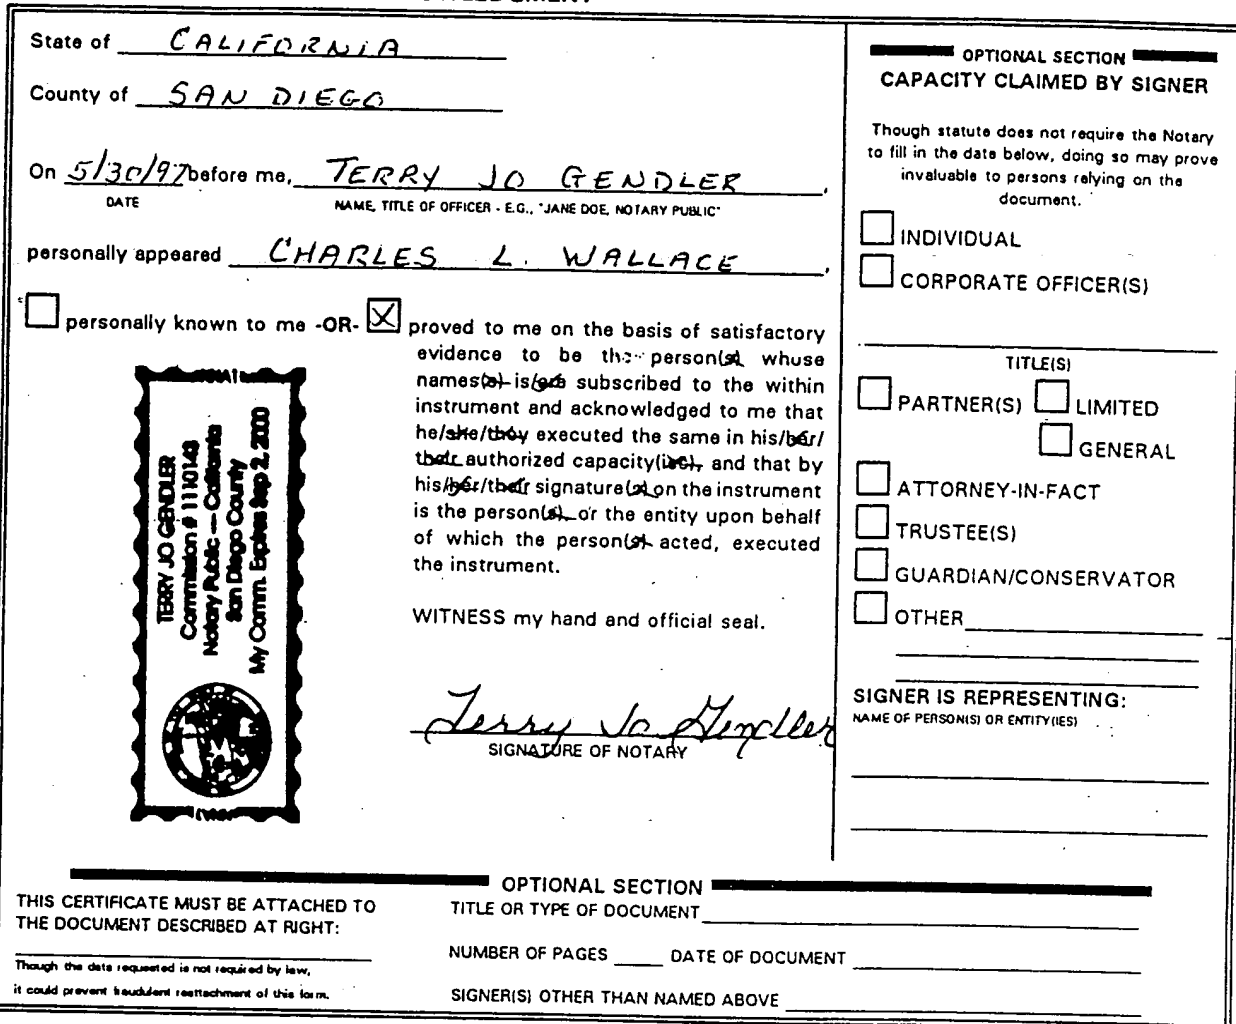 State of CALIFORNIA
County of SAN DIEGO
On 5/30/97 before me, TERRY JO GENDLER,
DATE
NAME, TITLE OF OFFICER - E.G., "JANE DOE, NOTARY PUBLIC"
personally appeared CHARLES L. WALLACE,
personally known to me -OR- X proved to me on the basis of satisfactory
evidence to be the person(s) whose
names(s) is/are subscribed to the within
instrument and acknowledged to me that
he/she/they executed the same in his/her/
their authorized capacity(ies), and that by
his/her/their signature(s) on the instrument
is the person(s) or the entity upon behalf
of which the person(s) acted, executed
the instrument.
WITNESS my hand and official seal.
Terry Jo Gendler
SIGNATURE OF NOTARY
TERRY JO GENDLER
Commission # 1110143
Notary Public — California
San Diego County
My Comm. Expires Sep 2, 2000
OPTIONAL SECTION
CAPACITY CLAIMED BY SIGNER
Though statute does not require the Notary
to fill in the data below, doing so may prove
invaluable to persons relying on the
document.
INDIVIDUAL
CORPORATE OFFICER(S)
TITLE(S)
PARTNER(S) LIMITED
GENERAL
ATTORNEY-IN-FACT
TRUSTEE(S)
GUARDIAN/CONSERVATOR
OTHER
SIGNER IS REPRESENTING:
NAME OF PERSON(S) OR ENTITY(IES)
OPTIONAL SECTION
THIS CERTIFICATE MUST BE ATTACHED TO
THE DOCUMENT DESCRIBED AT RIGHT:
Though the data requested is not required by law,
it could prevent fraudulent reattachment of this form.
TITLE OR TYPE OF DOCUMENT
NUMBER OF PAGES DATE OF DOCUMENT
SIGNER(S) OTHER THAN NAMED ABOVE